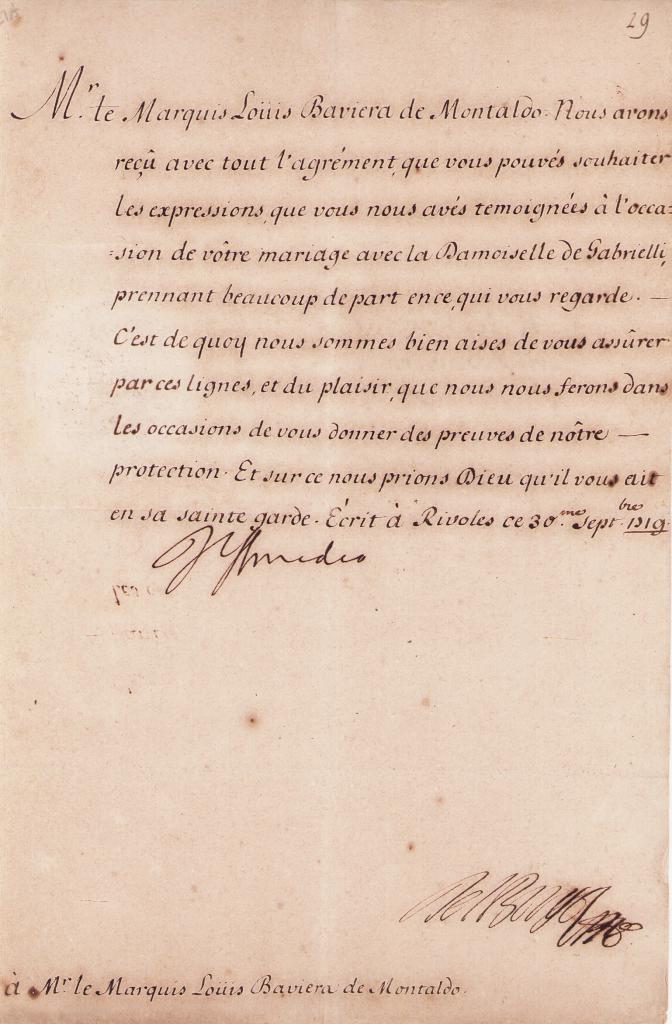 29
Mr. le Marquis Loüis Baviera de Montaldo. Nous avons
reçû avec tout l'agrément, que vous pouvés souhaiter
les expressions, que vous nous avés temoignées à l'occa=
=sion de vôtre mariage avec la Damoiselle de Gabrielli,
prennant beaucoup de part en ce, qui vous regarde. —
C'est de quoy nous sommes bien aises de vous assûrer
par ces lignes, et du plaisir, que nous nous ferons dans
les occasions de vous donner des preuves de nôtre —
protection. Et sur ce nous prions Dieu qu'il vous ait
en sa sainte garde. Écrit à Rivoles ce 30.me Sept.bre 1719.
V Amedeo
à Mr. le Marquis Loüis Baviera de Montaldo.